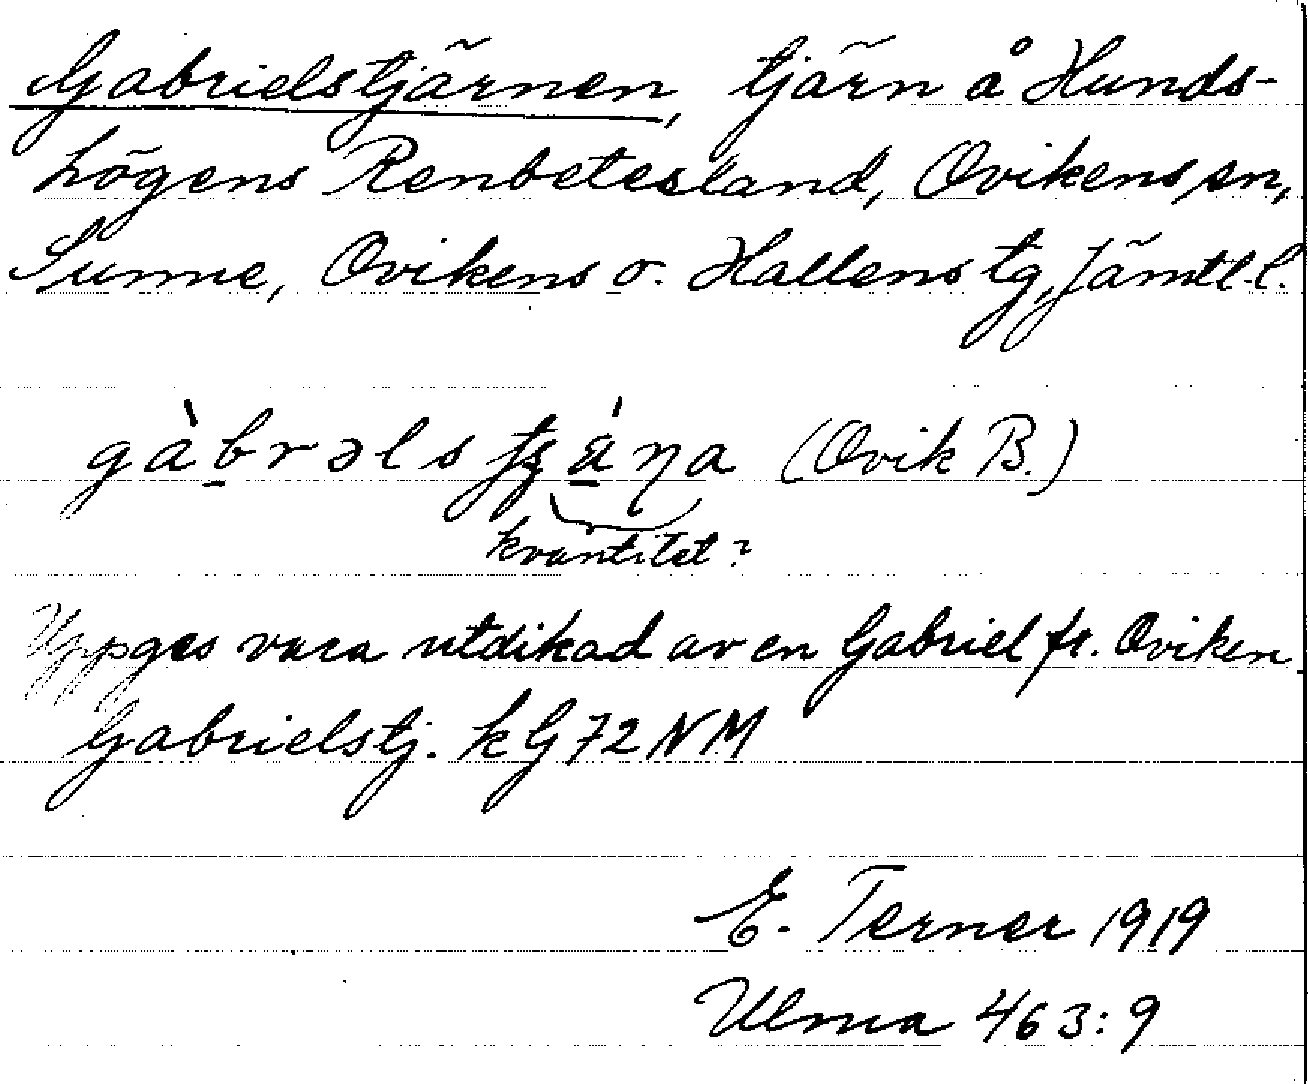 Gabrielstjärnen, tjärn å Hunds-
högens Renbetesland, Ovikens sn,
Sunne, Ovikens o. Hallens tg, Jämtl. l.
gàbrəls (Ovik B.)
kvantitet?
Uppges vara utdikad av en Gabriel fr. Oviken.
Gabrielstj. k G 72 NM
E. Terner 1919
Ulma 463:9